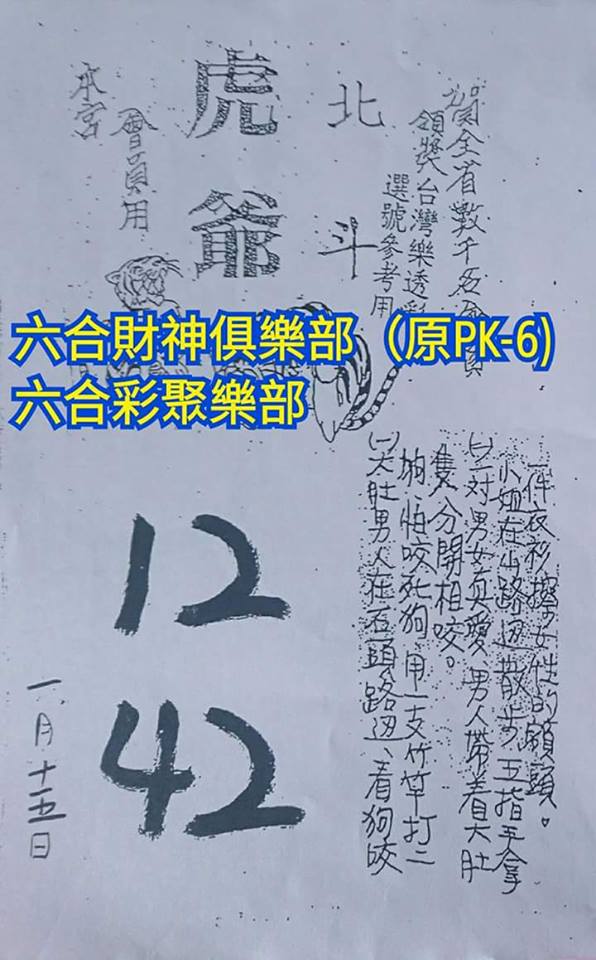 賀全省數千名會員
領獎台灣樂透彩
選號參考用
北斗
虎爺
會員用
本宮
六合財神俱樂部（原PK-6)
六合彩聚樂部
(一)大肚男人在石頭路边、看狗咬
狗、怕咬死狗、用一支竹竿打二
隻分開相咬。
(二)一對男女真愛、男人帶着大肚
小姐在山路边散步 五指手拿
一件夜衫擦女性的額頭。
12
42
一月十五日